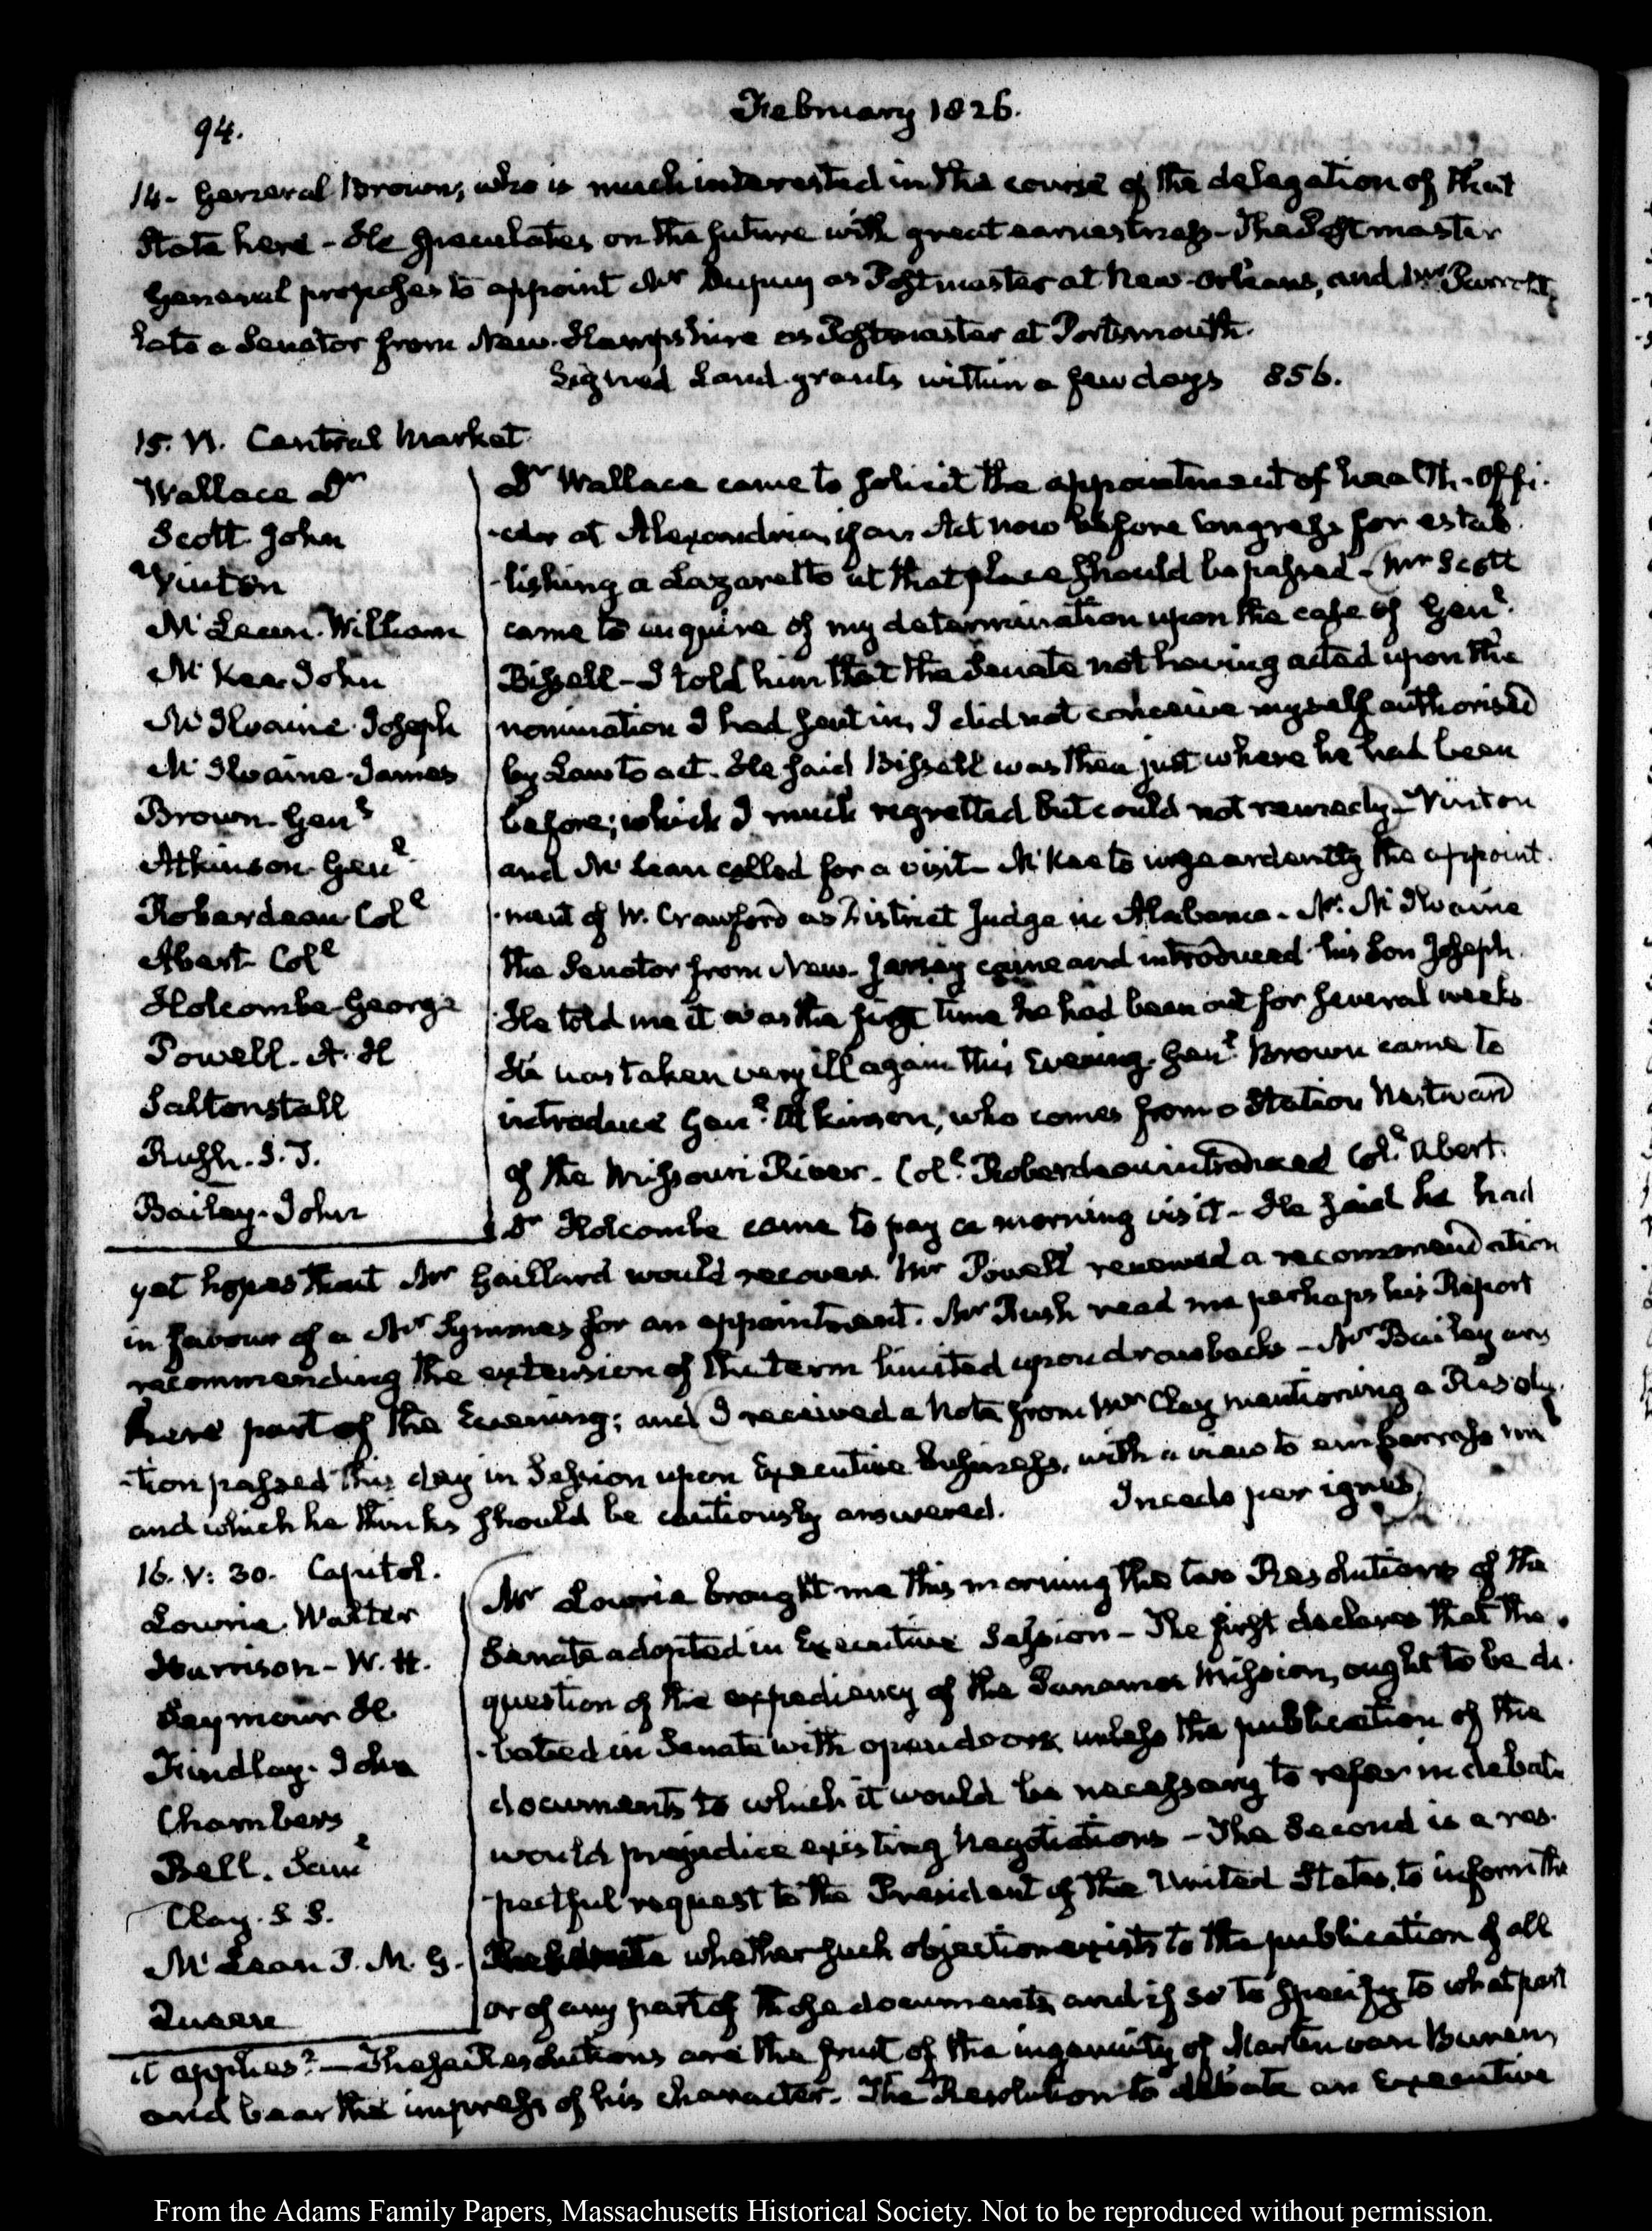 94.
February 1826.
14- General Brown, who is much interested in the course of the delegation of that
State here - He speculates on the future with great earnestness - The Postmaster
General proposes to appoint Mr Dupuy as Postmaster at New-Orleans, and Mr Parrott,
late a Senator from New-Hampshire as Postmaster at Portsmouth.
Signed Land grants within a few days 856.
15. VI. Central Market
Wallace Dr
Scott John
Vinton
McLean William
McKee John
McIlvaine Joseph
McIlvaine James
Brown Genl
Atkinson Genl
Roberdeau Coll
Abert Coll
Holcombe George
Powell. A. H
Saltonstall
Rush. S. T.
Bailey. John
Dr Wallace came to solicit the appointment of health-offi-
-cer at Alexandria, if an Act now before Congress for estab-
-lishing a Lazaretto at that place should be passed - Mr Scott
came to inquire of my determination upon the case of Genl
Bissell - I told him that the Senate not having acted upon the
nomination I had sent in, I did not conceive myself authorised
by Law to act. He said Bissell was then just where he had been
before; which I much regretted but could not remedy - Vinton
and McLean called for a visit - McKee to urge ardently the appoint-
-ment of W. Crawford as District Judge in Alabama - Mr McIlvaine
the Senator from New-Jersey came and introduced his Son Joseph.
He told me it was the first time he had been out for several weeks
He was taken very ill again this Evening. Genl Brown came to
introduce Genl Atkinson, who comes from a Station Westward
of the Missouri River - Coll Roberdeau introduced Coll Abert.
Dr Holcombe came to pay a morning visit - He said he had
yet hopes that Mr Gaillard would recover. Mr Powell renewed a recommendation
in favour of a Mr Symmes for an appointment. Mr Rush read me perhaps his Report
recommending the extension of the term limited upon drawbacks - Mr Bailey was
here part of the Evening; and I received a Note from Mr Clay mentioning a Resolu-
-tion passed this day in Session upon Executive business, with a view to embarrass me
and which he thinks should be cautiously answered. Incedo per ignes
16. V: 30. Capitol.
Lowrie Walter
Harrison - W. H.
Seymour H.
Findlay. John
Chambers
Bell. Saml
Clay. S S.
McLean P. M. G.
Queen
Mr Lowrie brought me this morning the two Resolutions of the
Senate adopted in Executive Session - The first declares that the
question of the expediency of the Panama Mission, ought to be de-
-bated in Senate with open doors, unless the publication of the
documents to which it would be necessary to refer in debate
would prejudice existing Negotiations - The Second is a res-
-pectful request to the President of the United States, to inform the
the Senate whether such objection exists to the publication of all
or of any part of those documents, and if so to specify to what part
it applies? - These Resolutions are the fruit of the ingenuity of Martin van Buren,
and bear the impress of his character. The Resolution to debate an Executive
From the Adams Family Papers, Massachusetts Historical Society. Not to be reproduced without permission.